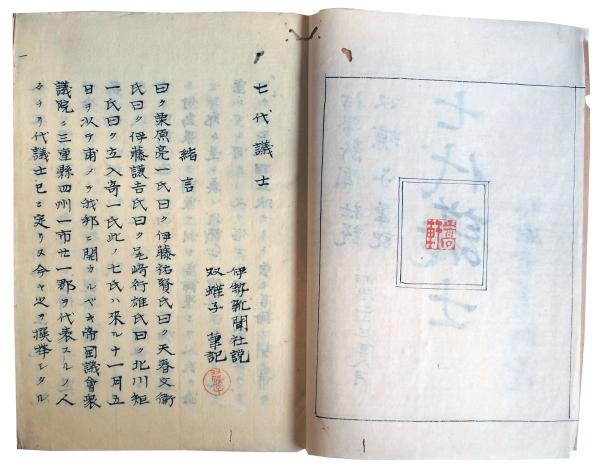 嵩軒
七代議士
伊勢新聞社説
双蝶子 筆記
緒言
曰ク栗原亮一氏曰ク伊藤祐賢氏曰ク天春文衛
氏曰ク伊藤謙吉氏曰ク尾崎行雄氏曰ク北川矩
一氏曰ク立入奇一氏此ノ七氏ハ來ル十一月五
日ヲ以テ甫メテ我邦ニ開カルベキ帝国議會衆
議院ニ三重縣四州一市廿一郡ヲ代表スルノ人
々ナリ代議士已ニ定リヌ今ヤ之ヲ撰挙シタル